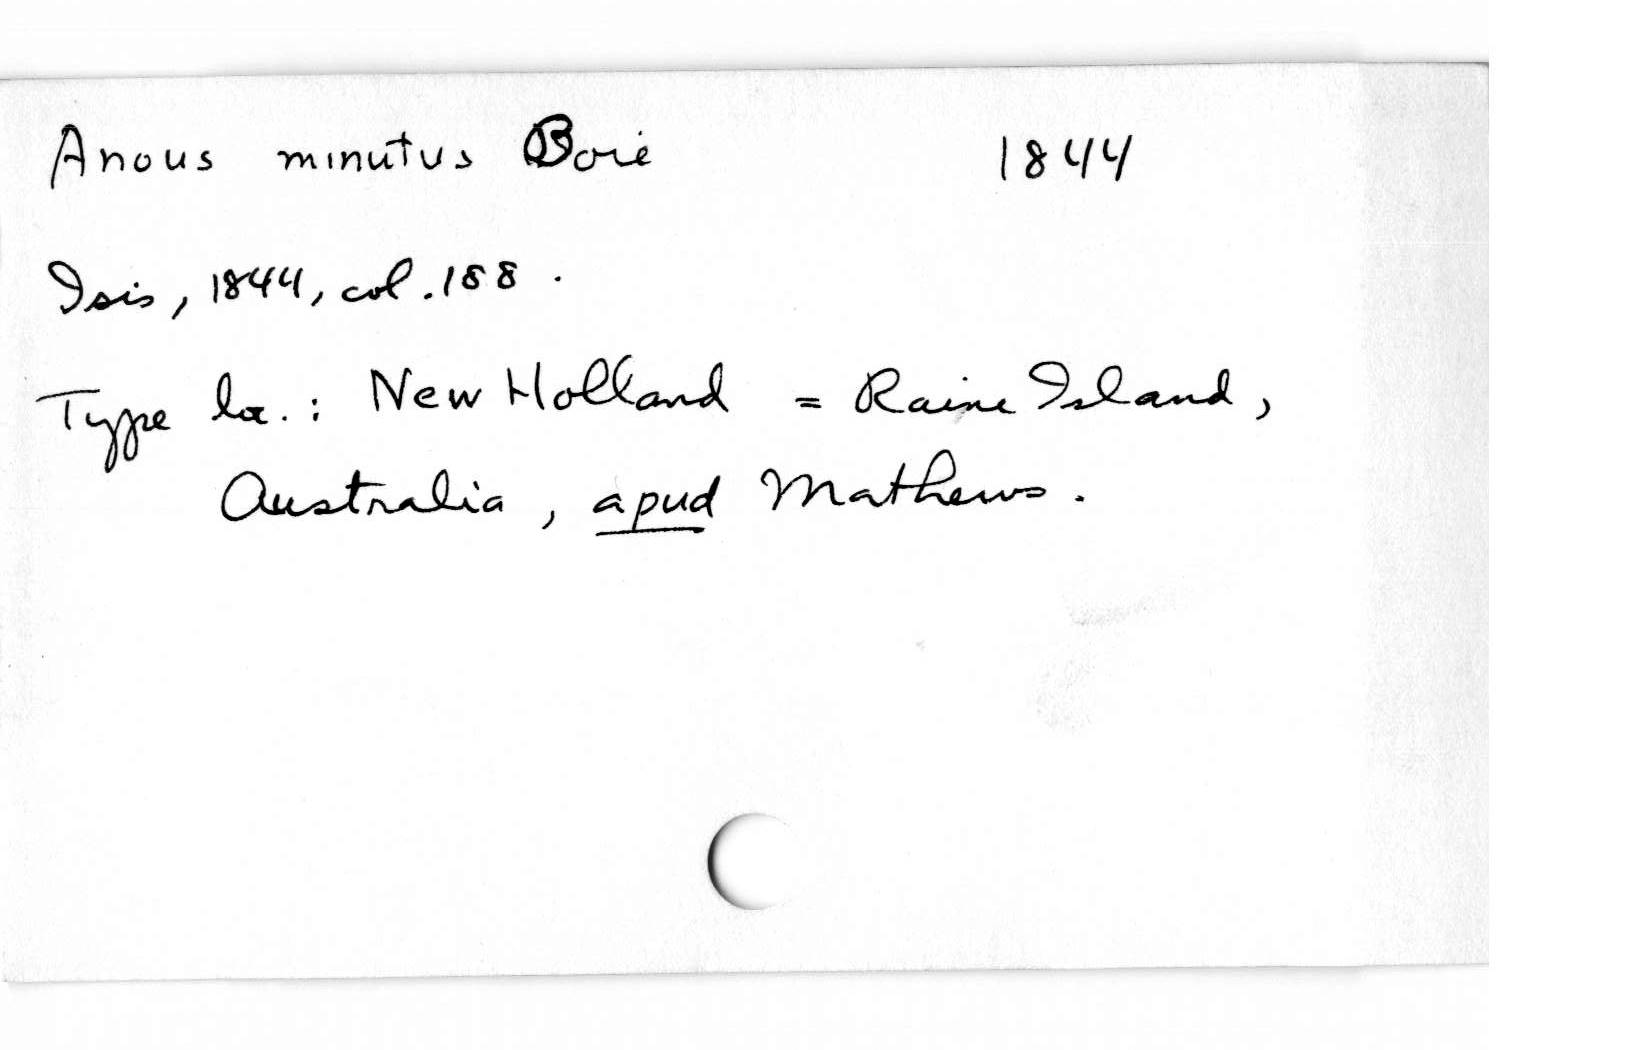 Anous minutus Boie 1844
Isis, 1844, col. 188.
Type loc.: New Holland = Raine Island,
Australia, apud Mathews.